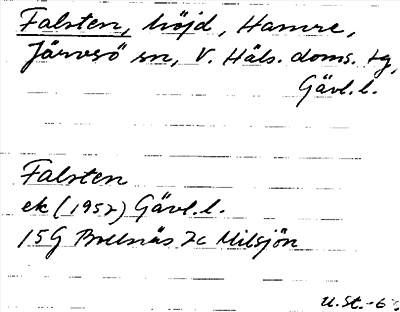 Falsten, höjd, Hamre,
Järvsö sn, V. Häls. doms. tg,
Gävl. l.
Falsten
ek (1957) Gävl. l.
15G Bollnäs 7c Milsjön
U.St.-6